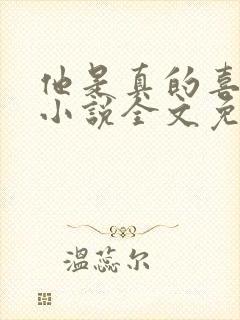 他是真的喜
小说全文免
温蕊尔